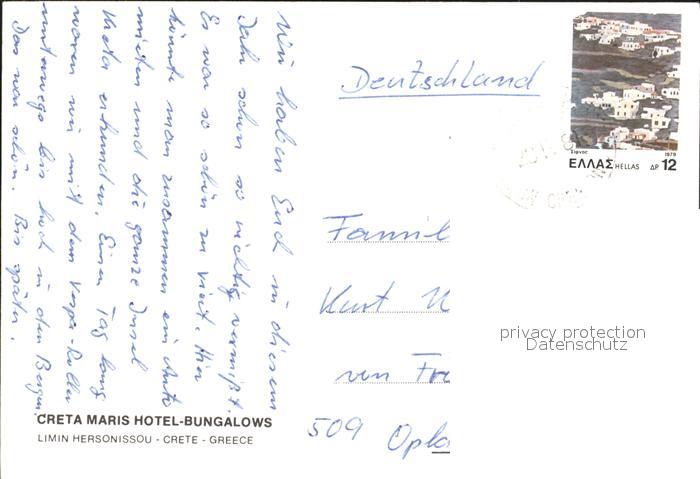 Wir haben Euch in diesem
Jahr schon so richtig vermißt.
Es war so schön zu viert. Hier
könnte man zusammen ein Auto
mieten und die ganze Insel
Kreta erkunden. Einen Tag lang
waren wir mit dem Vespa-Roller
unterwegs bis hoch in den Bergen.
Das war schön. Bis später.
CRETA MARIS HOTEL-BUNGALOWS
LIMIN HERSONISSOU - CRETE - GREECE
Deutschland
Σίφνος 1979
ΕΛΛΑΣ HELLAS ΔΡ 12
Famil
Kurt
von Fre
509 Opla
privacy protection
Datenschutz